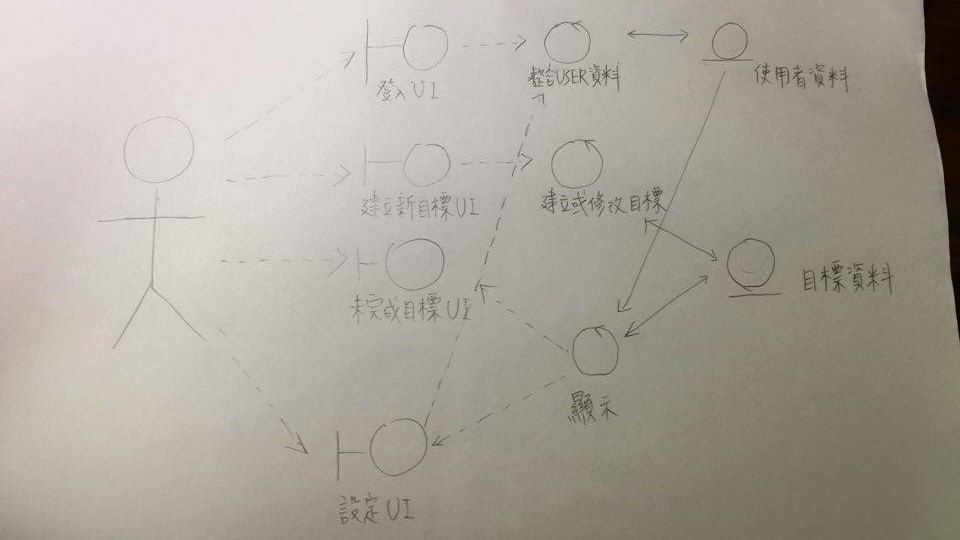 登入UI
整合USER資料
使用者資料
建立新目標UI
建立或修改目標
未完成目標UI
目標資料
顯示
設定UI